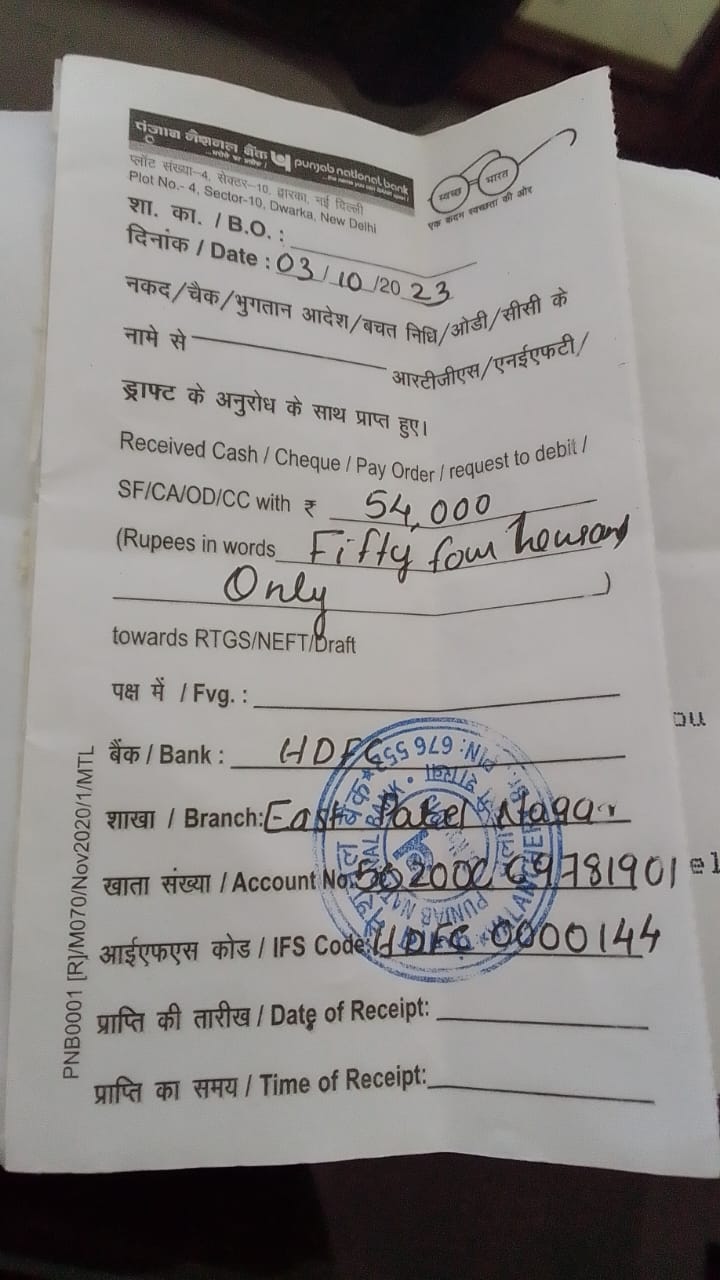 पंजाब नैशनल बैंक punjab national bank
...भरोसे का प्रतीक !
प्लॉट संख्या-4, सेक्टर-10, द्वारका, नई दिल्ली
Plot No.- 4, Sector-10, Dwarka, New Delhi
स्वच्छ भारत
एक कदम स्वच्छता की ओर
शा. का. / B.O. :
दिनांक / Date : 03/10/2023
नकद/चैक/भुगतान आदेश/बचत निधि/ओडी/सीसी के
नामे से आरटीजीएस/एनईएफटी/
ड्राफ्ट के अनुरोध के साथ प्राप्त हुए।
Received Cash / Cheque / Pay Order / request to debit /
SF/CA/OD/CC with ₹ 54,000
(Rupees in words Fifty four Thousand
Only )
towards RTGS/NEFT/Draft
पक्ष में / Fvg. :
बैंक / Bank : HDFC
शाखा / Branch: East Patel Nagar
खाता संख्या / Account No: 50200069781901
आईएफएस कोड / IFS Code: HDFC 0000144
प्राप्ति की तारीख / Date of Receipt:
प्राप्ति का समय / Time of Receipt:
PNB0001 [R]/M070/Nov2020/1/MTL
PIN: 676 553
PUNJAB NATIONAL BANK
ou
el